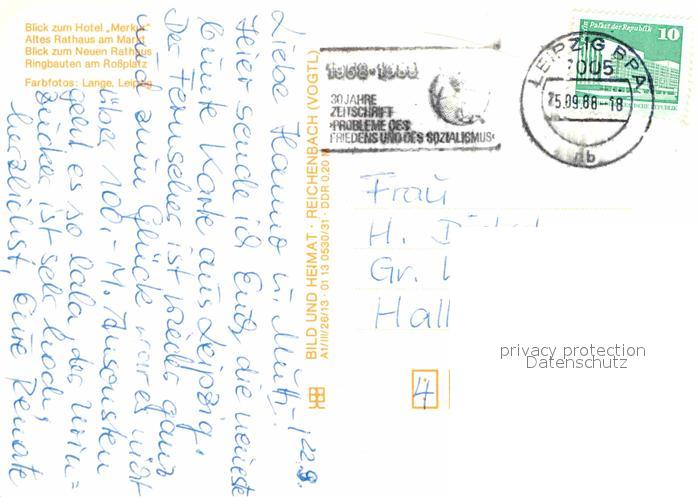 Blick zum Hotel „Merkur“
Altes Rathaus am Markt
Blick zum Neuen Rathaus
Ringbauten am Roßplatz
Farbfotos: Lange, Leipzig
Liebe Hanna u. Mutti! 22.9.
Hier sende ich Euch die neueste
bunte Karte aus Leipzig.
Der Fernseher ist wieder ganz
und zum Glück war es nicht
über 100,- M. Ansonsten
geht es so lala, der
zucker ist sehr hoch,
herzlichst Eure Renate
BILD UND HEIMAT · REICHENBACH (VOGTL)
A1/III/26/13 · 01 13 0530/31 · DDR 0,20 M
1968-1988
30 JAHRE
ZEITSCHRIFT
›PROBLEME DES
FRIEDENS UND DES SOZIALISMUS‹
LEIPZIG BPA
7005
25.09.88-18
nb
Palast der Republik
10
Frau
H.
Gr.
Hall
4
privacy protection
Datenschutz